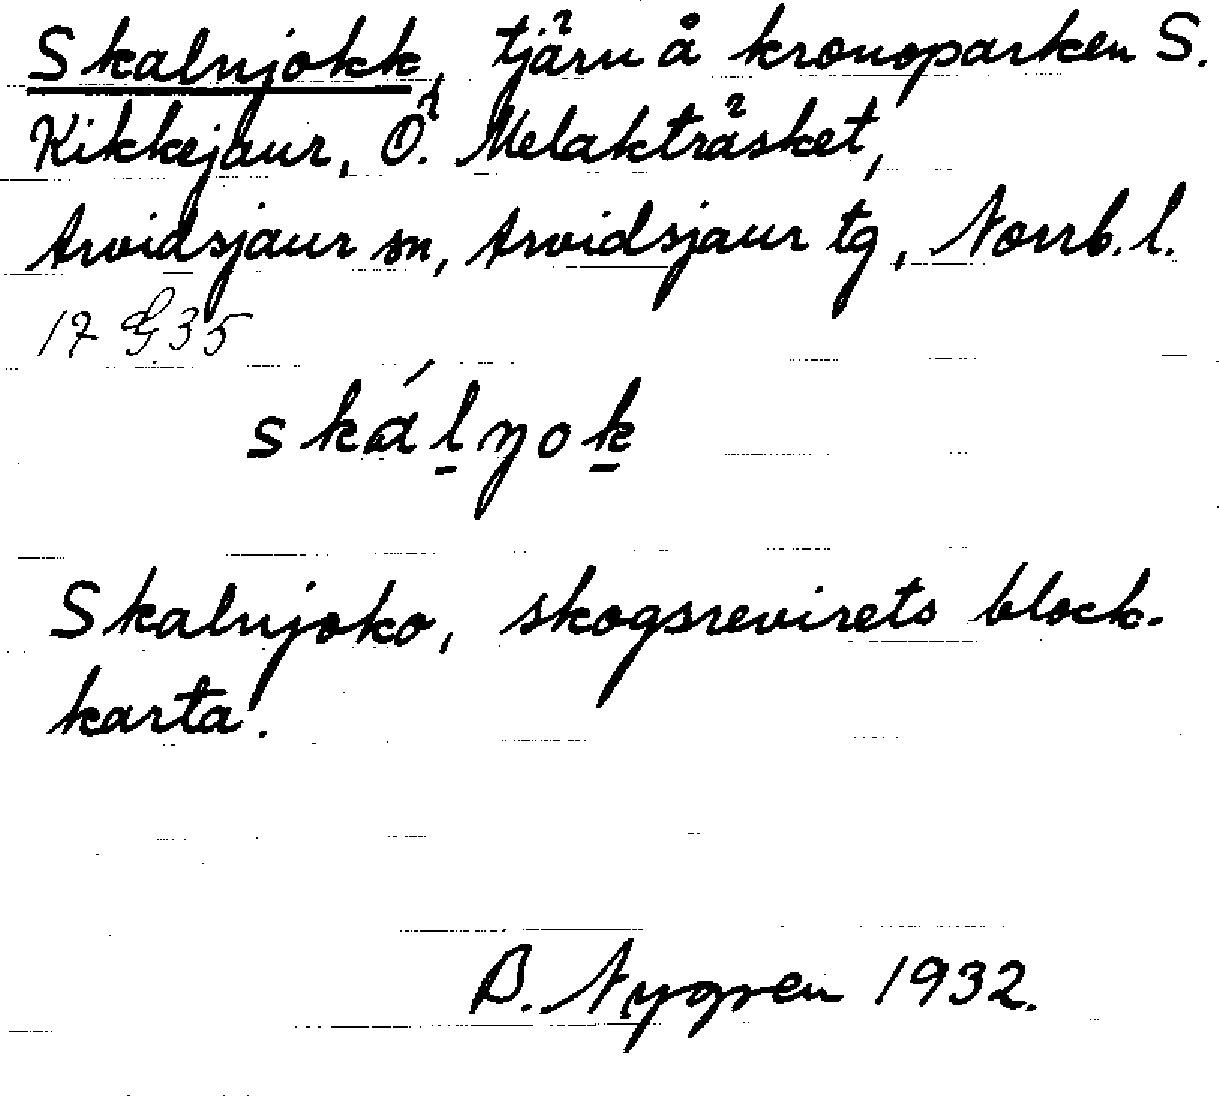 Skalnjokk, tjärn å kronoparken S.
Kikkejaur, Ö. Melakträsket,
Arvidsjaur sn, Arvidsjaur tg, Norrb. l.
17 G 35
skálŋok
Skalnjoko, skogsrevirets block-
karta.
B. Nygren 1932.